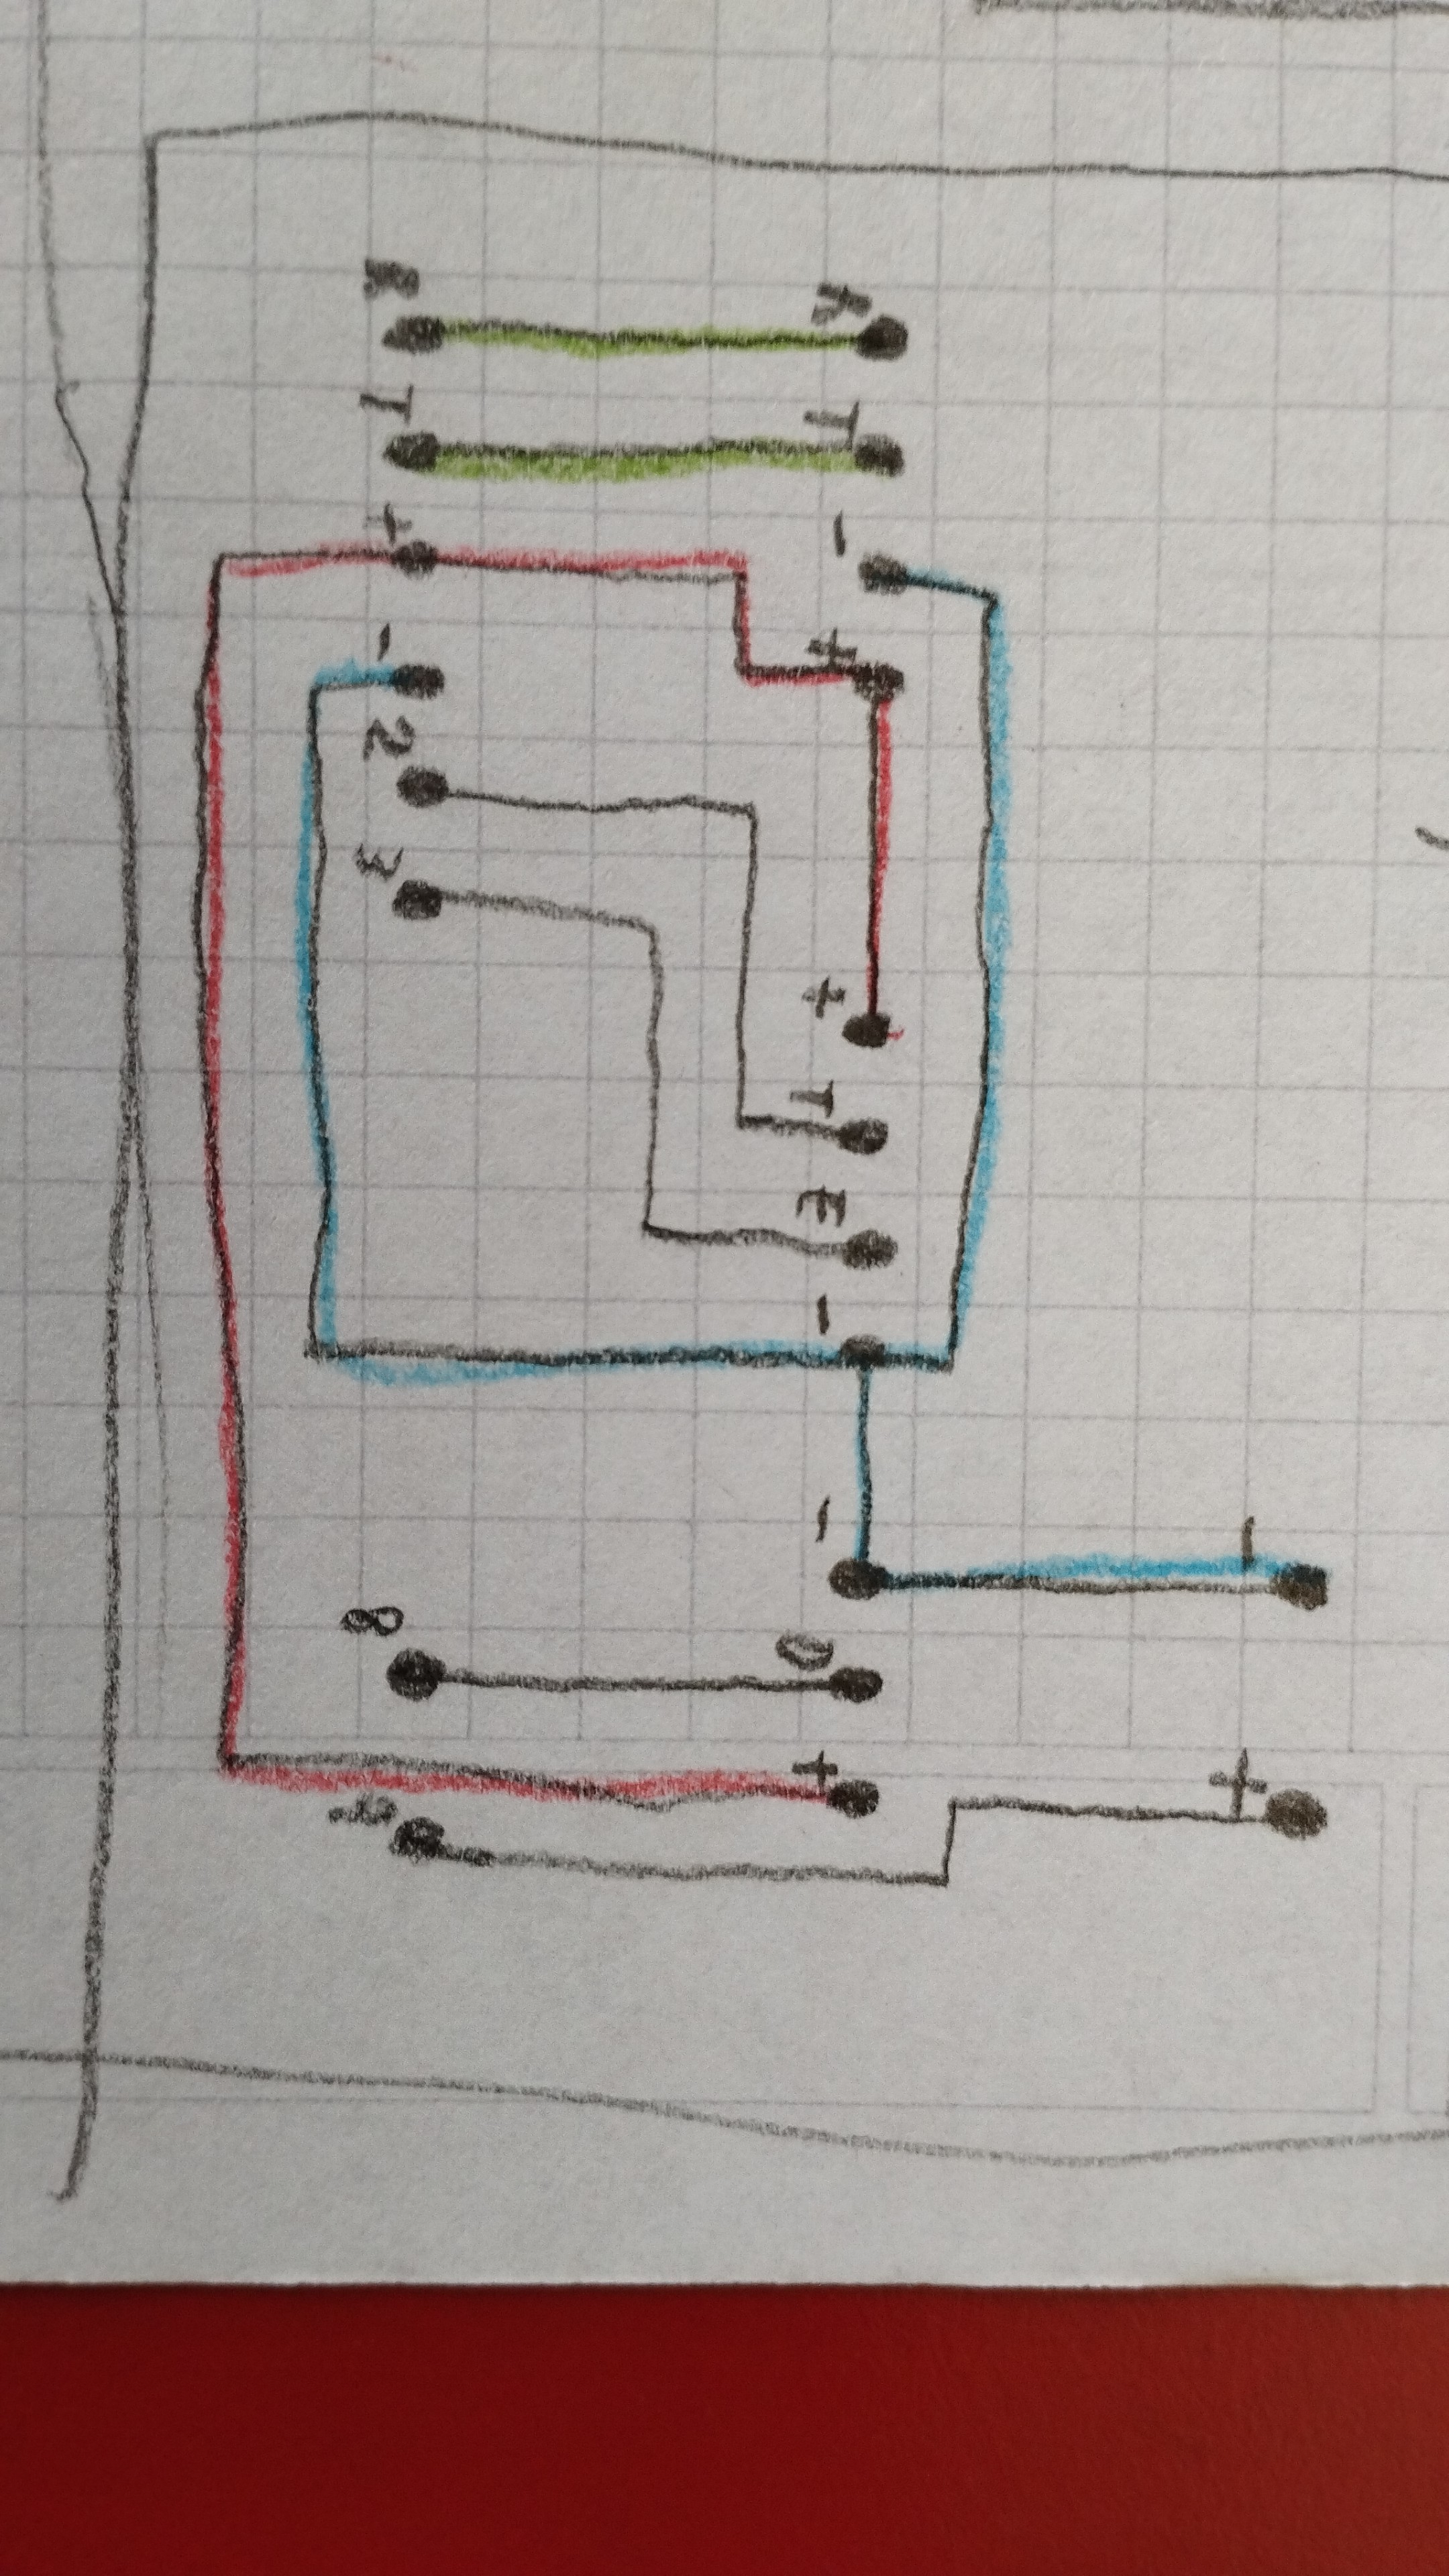 - +
R T - + + T E - - D +
R T + - 2 3 8